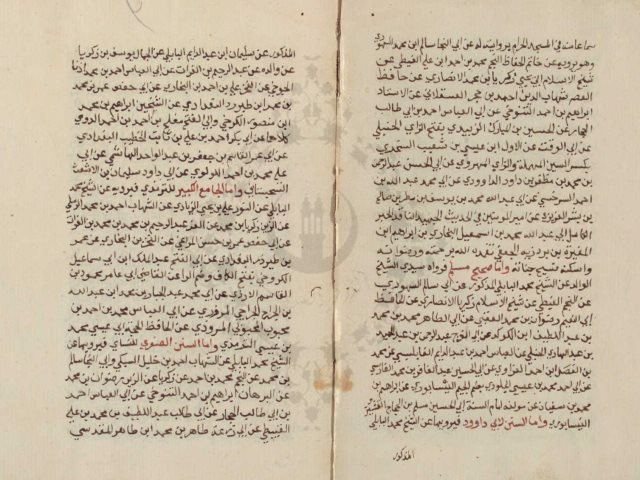 سماعا منه في المسجد الحرام بروايته له عن ابي النجا سالم ابن محمد السنهوري
وهو يرويه عن خاتم الحفاظ النجم محمد بن احمد ابن علي الغيطي عن
شيخ الاسلام ابي يحيى زكريا بن محمد الانصاري عن حافظ
العصر شهاب الدين احمد بن حجر العسقلاني عن الاستاد
ابراهيم بن احمد التنوخي عن ابي العباس احمد بن ابي طالب
الحجار عن الحسين بن المبارك الزبيدي بفتح الزاي الحنبلي
عن ابي الوقت عبد الاول ابن عيسى بن شعيب السجزي
بكسر السين المهملة والزاي الهروي عن ابي الحسن عبد الرحمن
بن محمد بن مظفر بن داود الداوودي عن ابي محمد عبد الله بن
احمد السرخسي عن ابي عبد الله محمد بن يوسف بن مطر بن صالح
بن بشر الفربري عن امير المومنين في الحديث
ابي عبد الله محمد بن اسمعيل البخاري بن ابراهيم ابن
المغيرة بن بردزبه الجعفي تغمده الله برحمته ورضوانه
واسكنه فسيح جنانه واما صحيح مسلم فرواه سيدي الشيخ
الوالد عن الشيخ محمد البابلي المذكور عن ابي سالم السنهوري
عن النجم الغيطي عن شيخ الاسلام زكريا الانصاري عن الحافظ
ابي النعيم رضوان بن محمد العقبي عن ابي الطاهر محمد بن محمد
بن عبد اللطيف ابن الكويك عن ابي الفرج عبد الرحمن بن عبد الحميد
بن عبد الهادي الحنبلي عن ابي العباس احمد بن عبد الدايم النابلسي عن محمد
بن الفضل عن ابي الحسين عبد الغافر بن محمد الفارسي
عن ابي احمد محمد بن عيسى الجلودي النيسابوري عن ابراهيم بن
محمد بن سفيان عن مولفه امام السنة ابي الحسين مسلم بن الحجاج القشيري
النيسابوري واما السنن لابي داوود فيرويها عن الشيخ محمد البابلي
المذكور
المذكور عن سليمان ابن عبد الدايم البابلي عن الجمال يوسف بن زكريا
عن والده عن عبد الرحيم بن الفرات عن ابي العباس احمد بن محمد
الجوخي عن الفخر علي بن احمد بن البخاري عن ابي حفص عمر بن محمد
بن محمد ابن طبرزد البغدادي عن الشيخين ابراهيم بن محمد
ابن منصور الكرخي وابي الفتح مفلح بن احمد بن احمد الدومي
كلاهما عن ابي بكر احمد بن علي بن ثابت الخطيب البغدادي
عن ابي عمر القاسم بن جعفر بن عبد الواحد الهاشمي عن ابي
علي محمد بن احمد اللولوي عن ابي داود سليمان بن الاشعث
السجستاني واما الجامع الكبير للترمذي فيرويه عن شيخه محمد
البابلي عن النور علي بن يحيى الزيادي عن الشهاب احمد بن محمد الرملي
عن الزين زكريا بن محمد عن العز عبد الرحيم بن محمد بن محمد بن الفرات
عن ابي حفص عمر بن حسن المراغي عن الفخر بن البخاري عن عمر
بن طبرزد البغدادي عن ابي الفتح عبد الملك ابن ابي سهل
الكروخي بفتح الكاف وضم الراء عن القاضي ابي عامر محمود بن
القاسم الازدي عن ابي محمد عبد الجبار بن محمد ابن عبد الله
بن الجراح الجراحي المروزي عن ابي العباس محمد بن احمد بن
محبوب المحبوبي المروزي عن الحافظ الحجة ابي عيسى محمد
بن عيسى الترمذي واما السنن الصغرى للنساي فيرويها عن
الشيخ محمد البابلي عن الشهاب احمد بن خليل السبكي وابي النجا سالم
بن محمد عن النجم محمد بن احمد عن زكريا عن الزين رضوان بن محمد
عن البرهان ابراهيم بن احمد التنوخي عن ابي العباس احمد
بن ابي طالب الحجار عن ابي طالب عبد اللطيف بن محمد بن علي
القبيطي عن ابي زرعة طاهر بن محمد ابن طاهر المقدسي